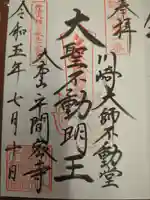 奉拝
川崎大師不動堂
大聖不動明王
大本山平間教寺
令和五年七月十日